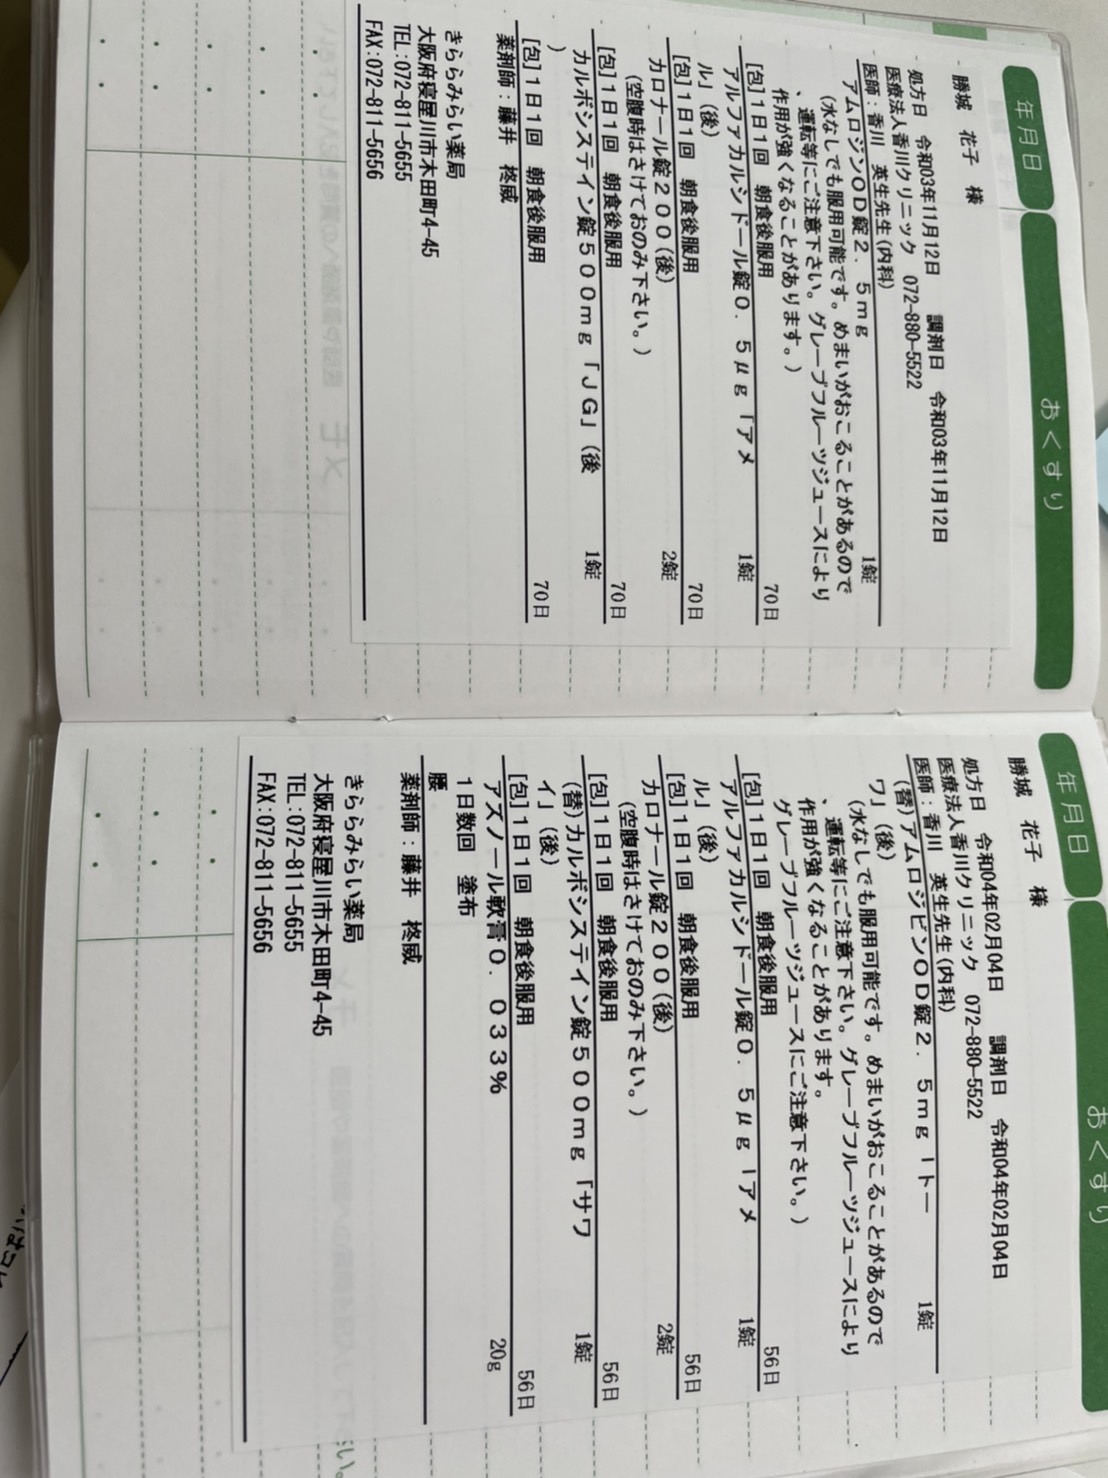 年月日 おくすり
勝城 花子 様
処方日 令和03年11月12日 調剤日 令和03年11月12日
医療法人香川クリニック 072-880-5522
医師：香川 英生先生（内科）
アムロジンＯＤ錠２．５ｍｇ 1錠
（水なしでも服用可能です。めまいがおこることがあるので
、運転等にご注意下さい。グレープフルーツジュースにより
作用が強くなることがあります。）
[包]１日１回 朝食後服用 70日
アルファカルシドール錠０．５μｇ「アメ 1錠
ル」（後）
[包]１日１回 朝食後服用 70日
カロナール錠２００（後） 2錠
（空腹時はさけておのみ下さい。）
[包]１日１回 朝食後服用 70日
カルボシステイン錠５００ｍｇ「ＪＧ」（後 1錠
）
[包]１日１回 朝食後服用 70日
薬剤師：藤井 柊威
きららみらい薬局
大阪府寝屋川市木田町4-45
TEL:072-811-5655
FAX:072-811-5656
年月日 おくすり
勝城 花子 様
処方日 令和04年02月04日 調剤日 令和04年02月04日
医療法人香川クリニック 072-880-5522
医師：香川 英生先生（内科）
（替）アムロジピンＯＤ錠２．５ｍｇ「トー 1錠
ワ」（後）
（水なしでも服用可能です。めまいがおこることがあるので
、運転等にご注意下さい。グレープフルーツジュースにより
作用が強くなることがあります。
グレープフルーツジュースにご注意下さい。）
[包]１日１回 朝食後服用 56日
アルファカルシドール錠０．５μｇ「アメ 1錠
ル」（後）
[包]１日１回 朝食後服用 56日
カロナール錠２００（後） 2錠
（空腹時はさけておのみ下さい。）
[包]１日１回 朝食後服用 56日
（替）カルボシステイン錠５００ｍｇ「サワ 1錠
イ」（後）
[包]１日１回 朝食後服用 56日
アズノール軟膏０．０３３％ 20g
１日数回 塗布
腰
薬剤師：藤井 柊威
きららみらい薬局
大阪府寝屋川市木田町4-45
TEL:072-811-5655
FAX:072-811-5656